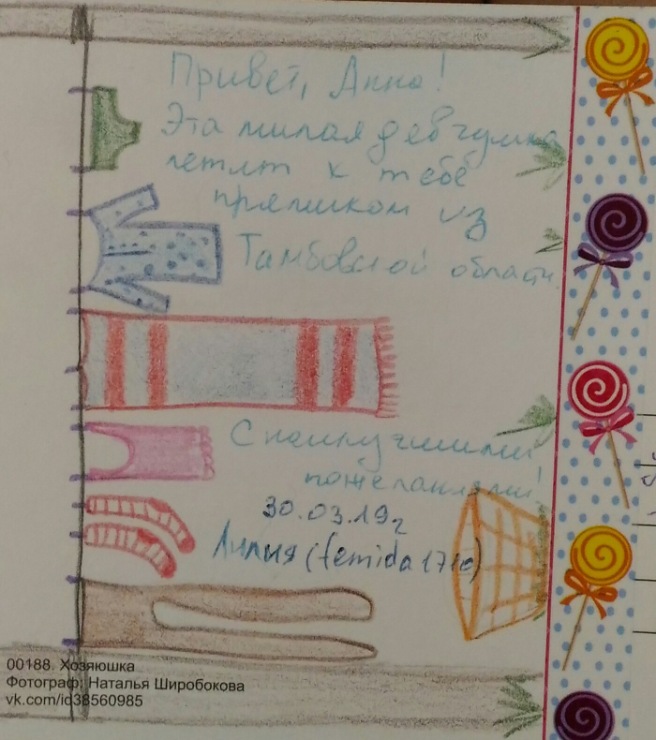 Привет, Анна!
Эта милая девчушка
летит к тебе
прямиком из
Тамбовской области.
С наилучшими
пожеланиями!
30.03.19г
Лилия (femida1710)
00188. Хозяюшка
Фотограф: Наталья Широбокова
vk.com/id38560985